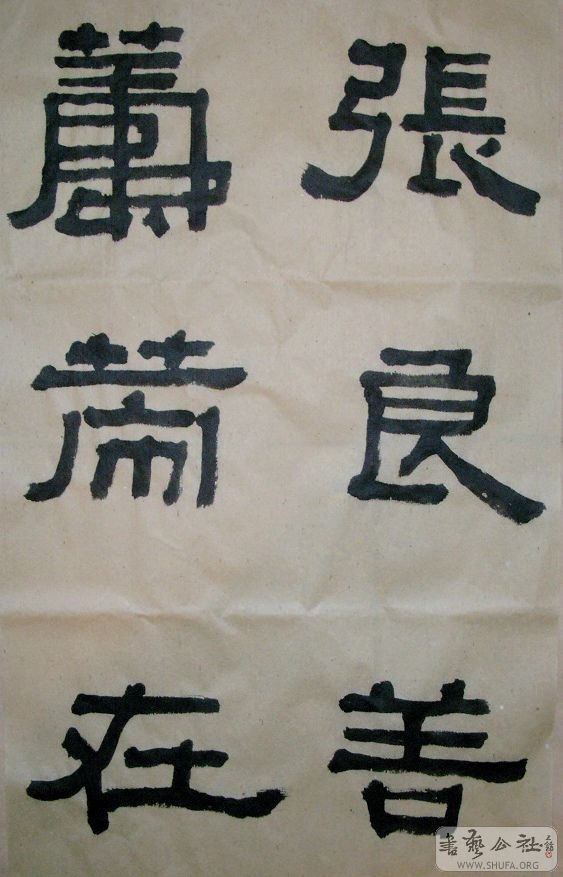 張良善
籌策在
書藝公社
WWW.SHUFA.ORG